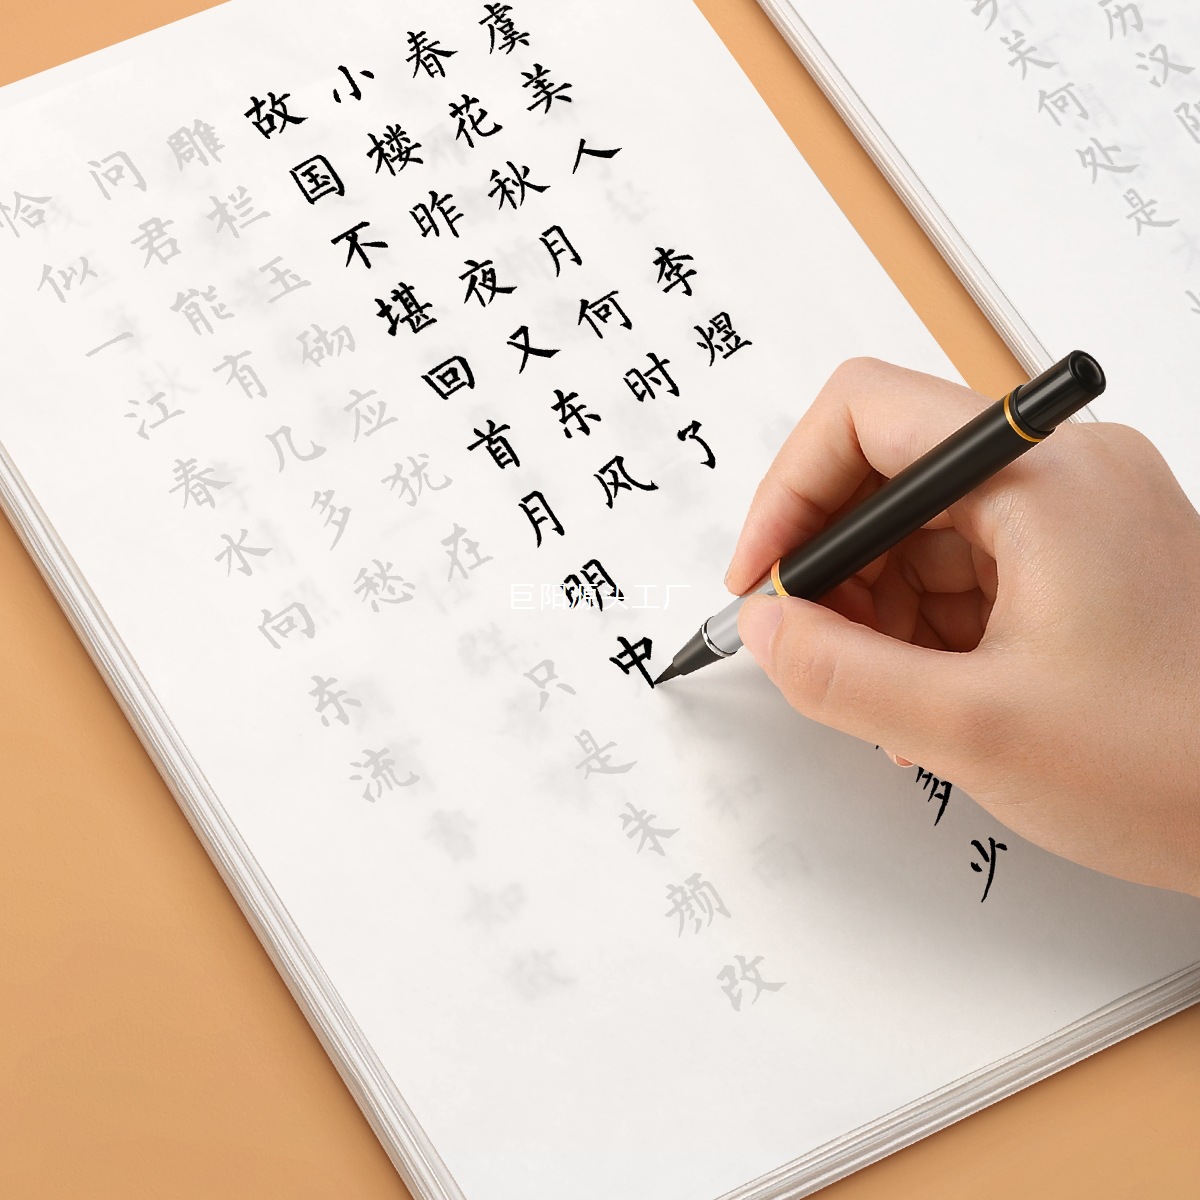 历汉
关何处是
虞美人 李煜
春花秋月何时了 多少
小楼昨夜又东风
故国不堪回首月明中
雕栏玉砌应犹在 只是朱颜改
问君能有几多愁
恰似一江春水向东流
巨阳源头工厂